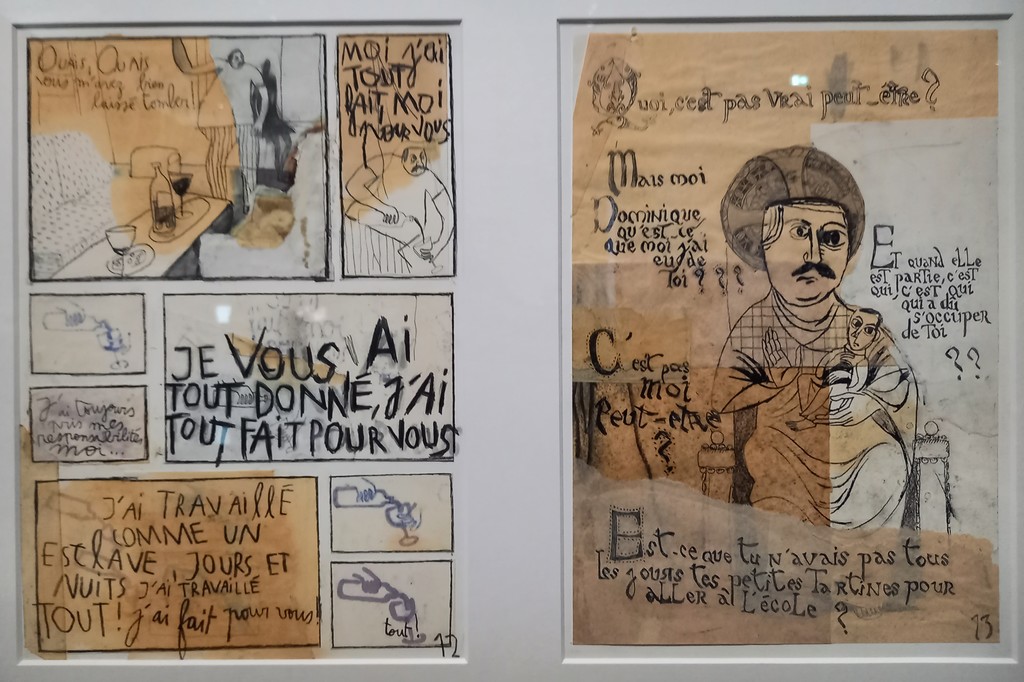 Ouais, Ouais
vous m'avez bien
laissé tomber!
MOI J'AI
TOUT
FAIT MOI
POUR VOUS
JE VOUS AI
TOUT DONNÉ, J'AI
TOUT FAIT POUR VOUS
J'ai toujours
pris mes
responsabilités
moi...
J'AI TRAVAILLÉ
COMME UN
ESCLAVE, JOURS ET
NUITS J'AI TRAVAILLÉ
TOUT! j'ai fait pour vous!
tout!
12
Quoi, c'est pas vrai peut-être?
Mais moi
Dominique
qu'est-ce
que moi j'ai
eu de
Toi? ? ?
Et quand elle
est partie, c'est
qui, c'est qui
qui a dû
s'occuper
de Toi
??
C'est pas
moi
Peut-être
?
Est-ce que tu n'avais pas tous
les jours tes petites Tartines pour
aller à l'école ?
13